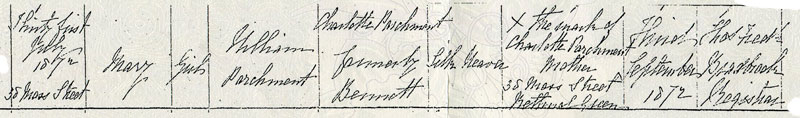 Thirty first
July
1872
38 Moss Street
Mary
Girl
William
Parchment
Charlotte Parchment
formerly
Bennett
Silk Weaver
X The mark of
Charlotte Parchment
Mother
38 Moss Street
Bethnal Green
Third
September
1872
Registrar